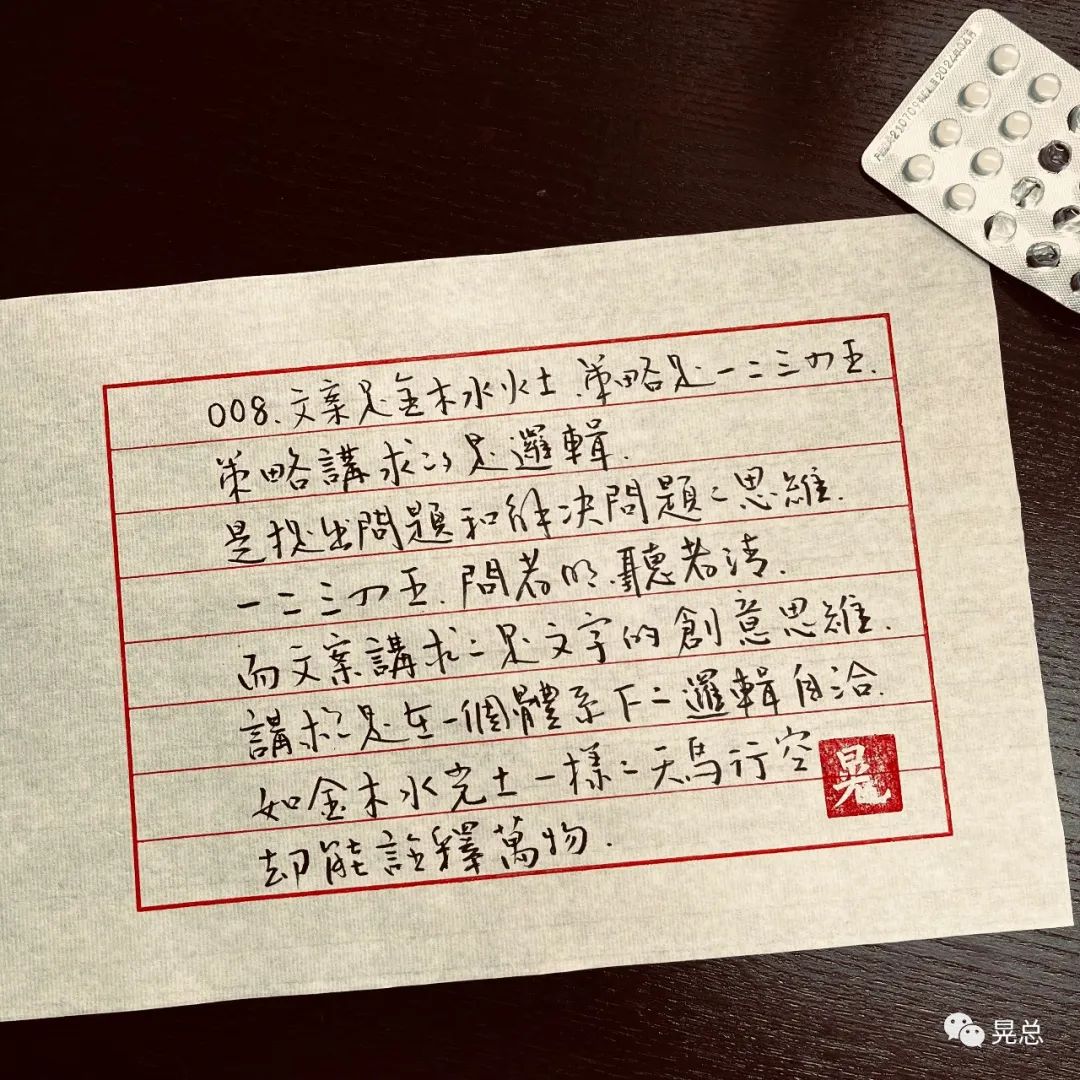 008.文案是金木水火土.策略是一二三四五.
策略講求的是邏輯.
是提出問題和解决問題之思維.
一二三四五.問者明.聽者清.
而文案講求之是文字的創意思維.
講求之是在一個體系下之邏輯自洽.
如金木水火土一樣之天馬行空
却能詮釋萬物.
晃
210709
2024年06月
晃总